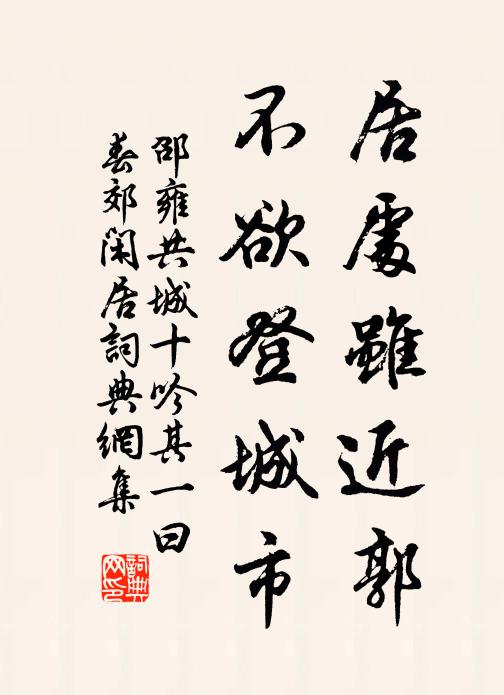 居處雖近郭
不欲登城市
邵雍共城十吟其一曰
春郊閑居詞典網集
詞典网印